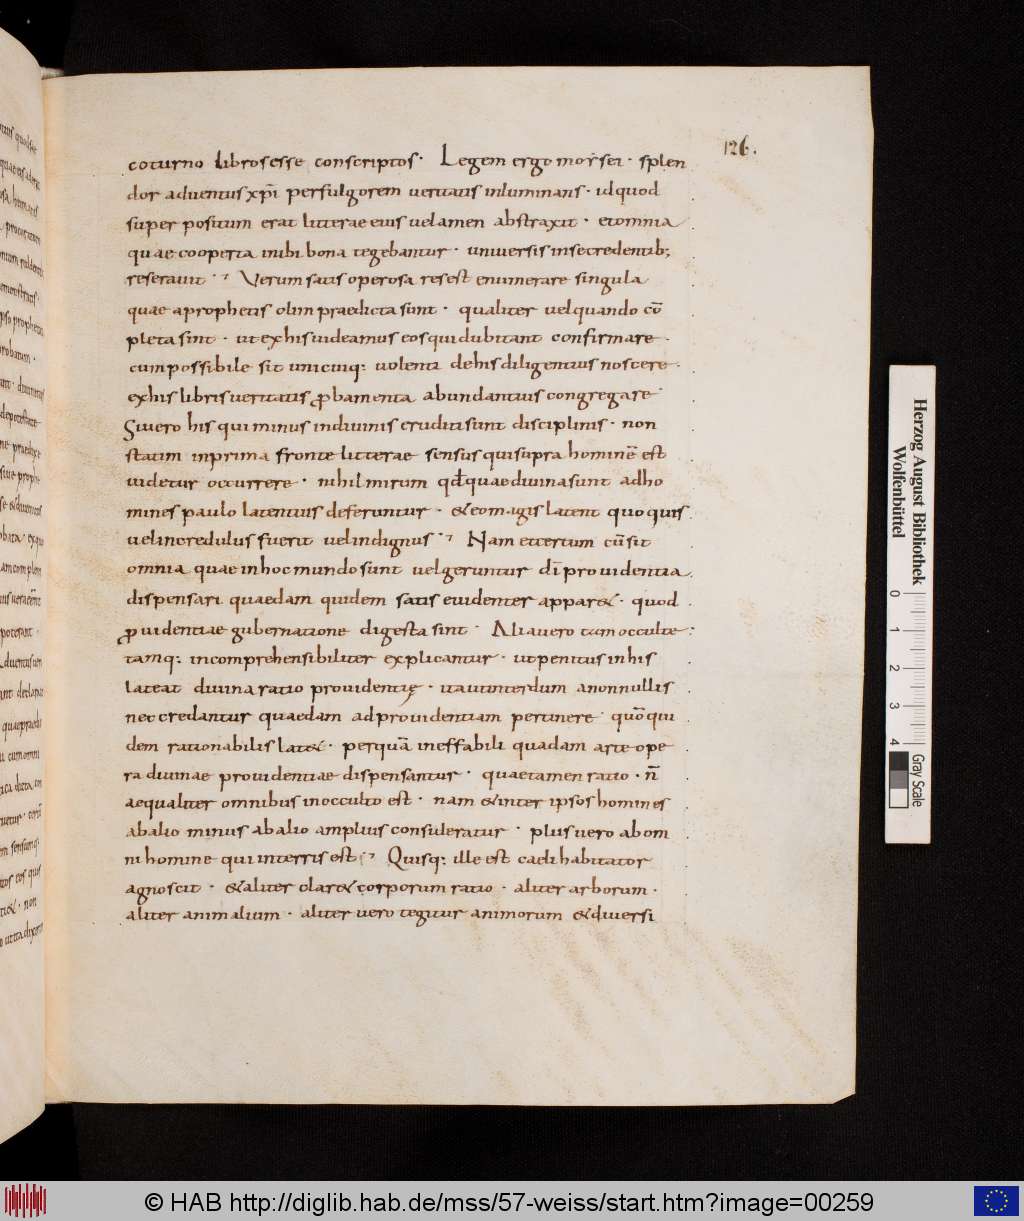 126.
coturno libros esse conscriptos · Legem ergo morsei · splen
dor aduentus xp̄i perfulgorem ueritatis inluminans · id quod
super positum erat litterae eius uelamen abstraxit · et omnia
quae cooperta inibi bona tegebantur · uniuersis in se credentib;
reserauit · Verum satis operosa res est enumerare singula
quae a prophetis olim praedicta sunt · qualiter uel quando cō
pleta sint · ut ex his uideamus eos qui dubitant confirmare ·
cum possibile sit unicuiq: uolenti de his diligentius noscere ·
ex his libris ueritatis ꝓbamenta abundantius congregare
Si uero his qui minus in diuinis eruditi sunt disciplinis · non
statim in prima fronte litterae sensus qui supra hominē est
uidetur occurrere · nihil mirum qđ quae diuina sunt ad ho
mines paulo latentius deferuntur · & eo magis latent quo quis
uel incredulus fuerit uel indignus · Nam et certum cū sit
omnia quae in hoc mundo sunt uel geruntur dī prouidentia
dispensari quaedam quidem satis euidenter appar& · quod
ꝓuidentiae gubernatione digesta sint · Alia uero tam occulte
tamq: incomprehensibiliter explicantur · ut penitus in his
lateat diuina ratio prouidentię · ita ut interdum a nonnullis
nec credantur quaedam ad prouidentiam pertinere quō qui
dem rationabilis lat& · per quā ineffabili quadam arte ope
ra diuinae prouidentiae dispensantur · quae tamen ratio · n̄
aequaliter omnibus in occulto est · nam & inter ipsos homines
ab alio minus ab alio amplius consideratur · plus uero ab om
ni homine qui in terris est · Quisq: ille est caeli habitator
agnoscit · & aliter clar& corporum ratio · aliter arborum ·
aliter animalium · aliter uero tegitur animorum & diuersi
Herzog August Bibliothek
Wolfenbüttel
0 1 2 3 4
Gray Scale
© HAB http://diglib.hab.de/mss/57-weiss/start.htm?image=00259